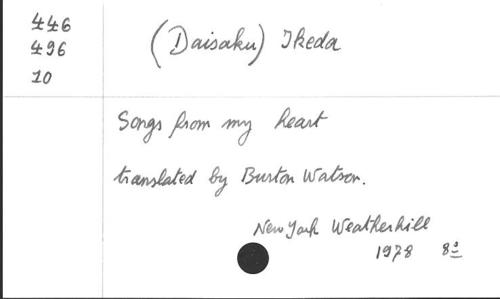 446
496
10
(Daisaku) Ikeda
Songs from my heart
translated by Burton Watson.
New York Weatherhill
1978 8º